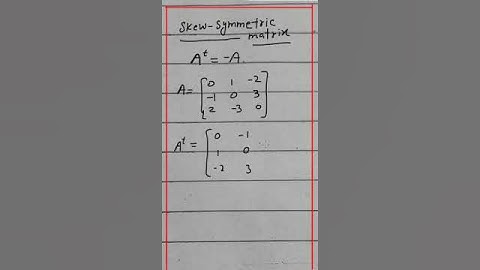 Skew-Symmetric
matrix
Aᵗ = -A.
A = [0 1 -2
-1 0 3
2 -3 0]
Aᵗ = [0 -1
1 0
-2 3